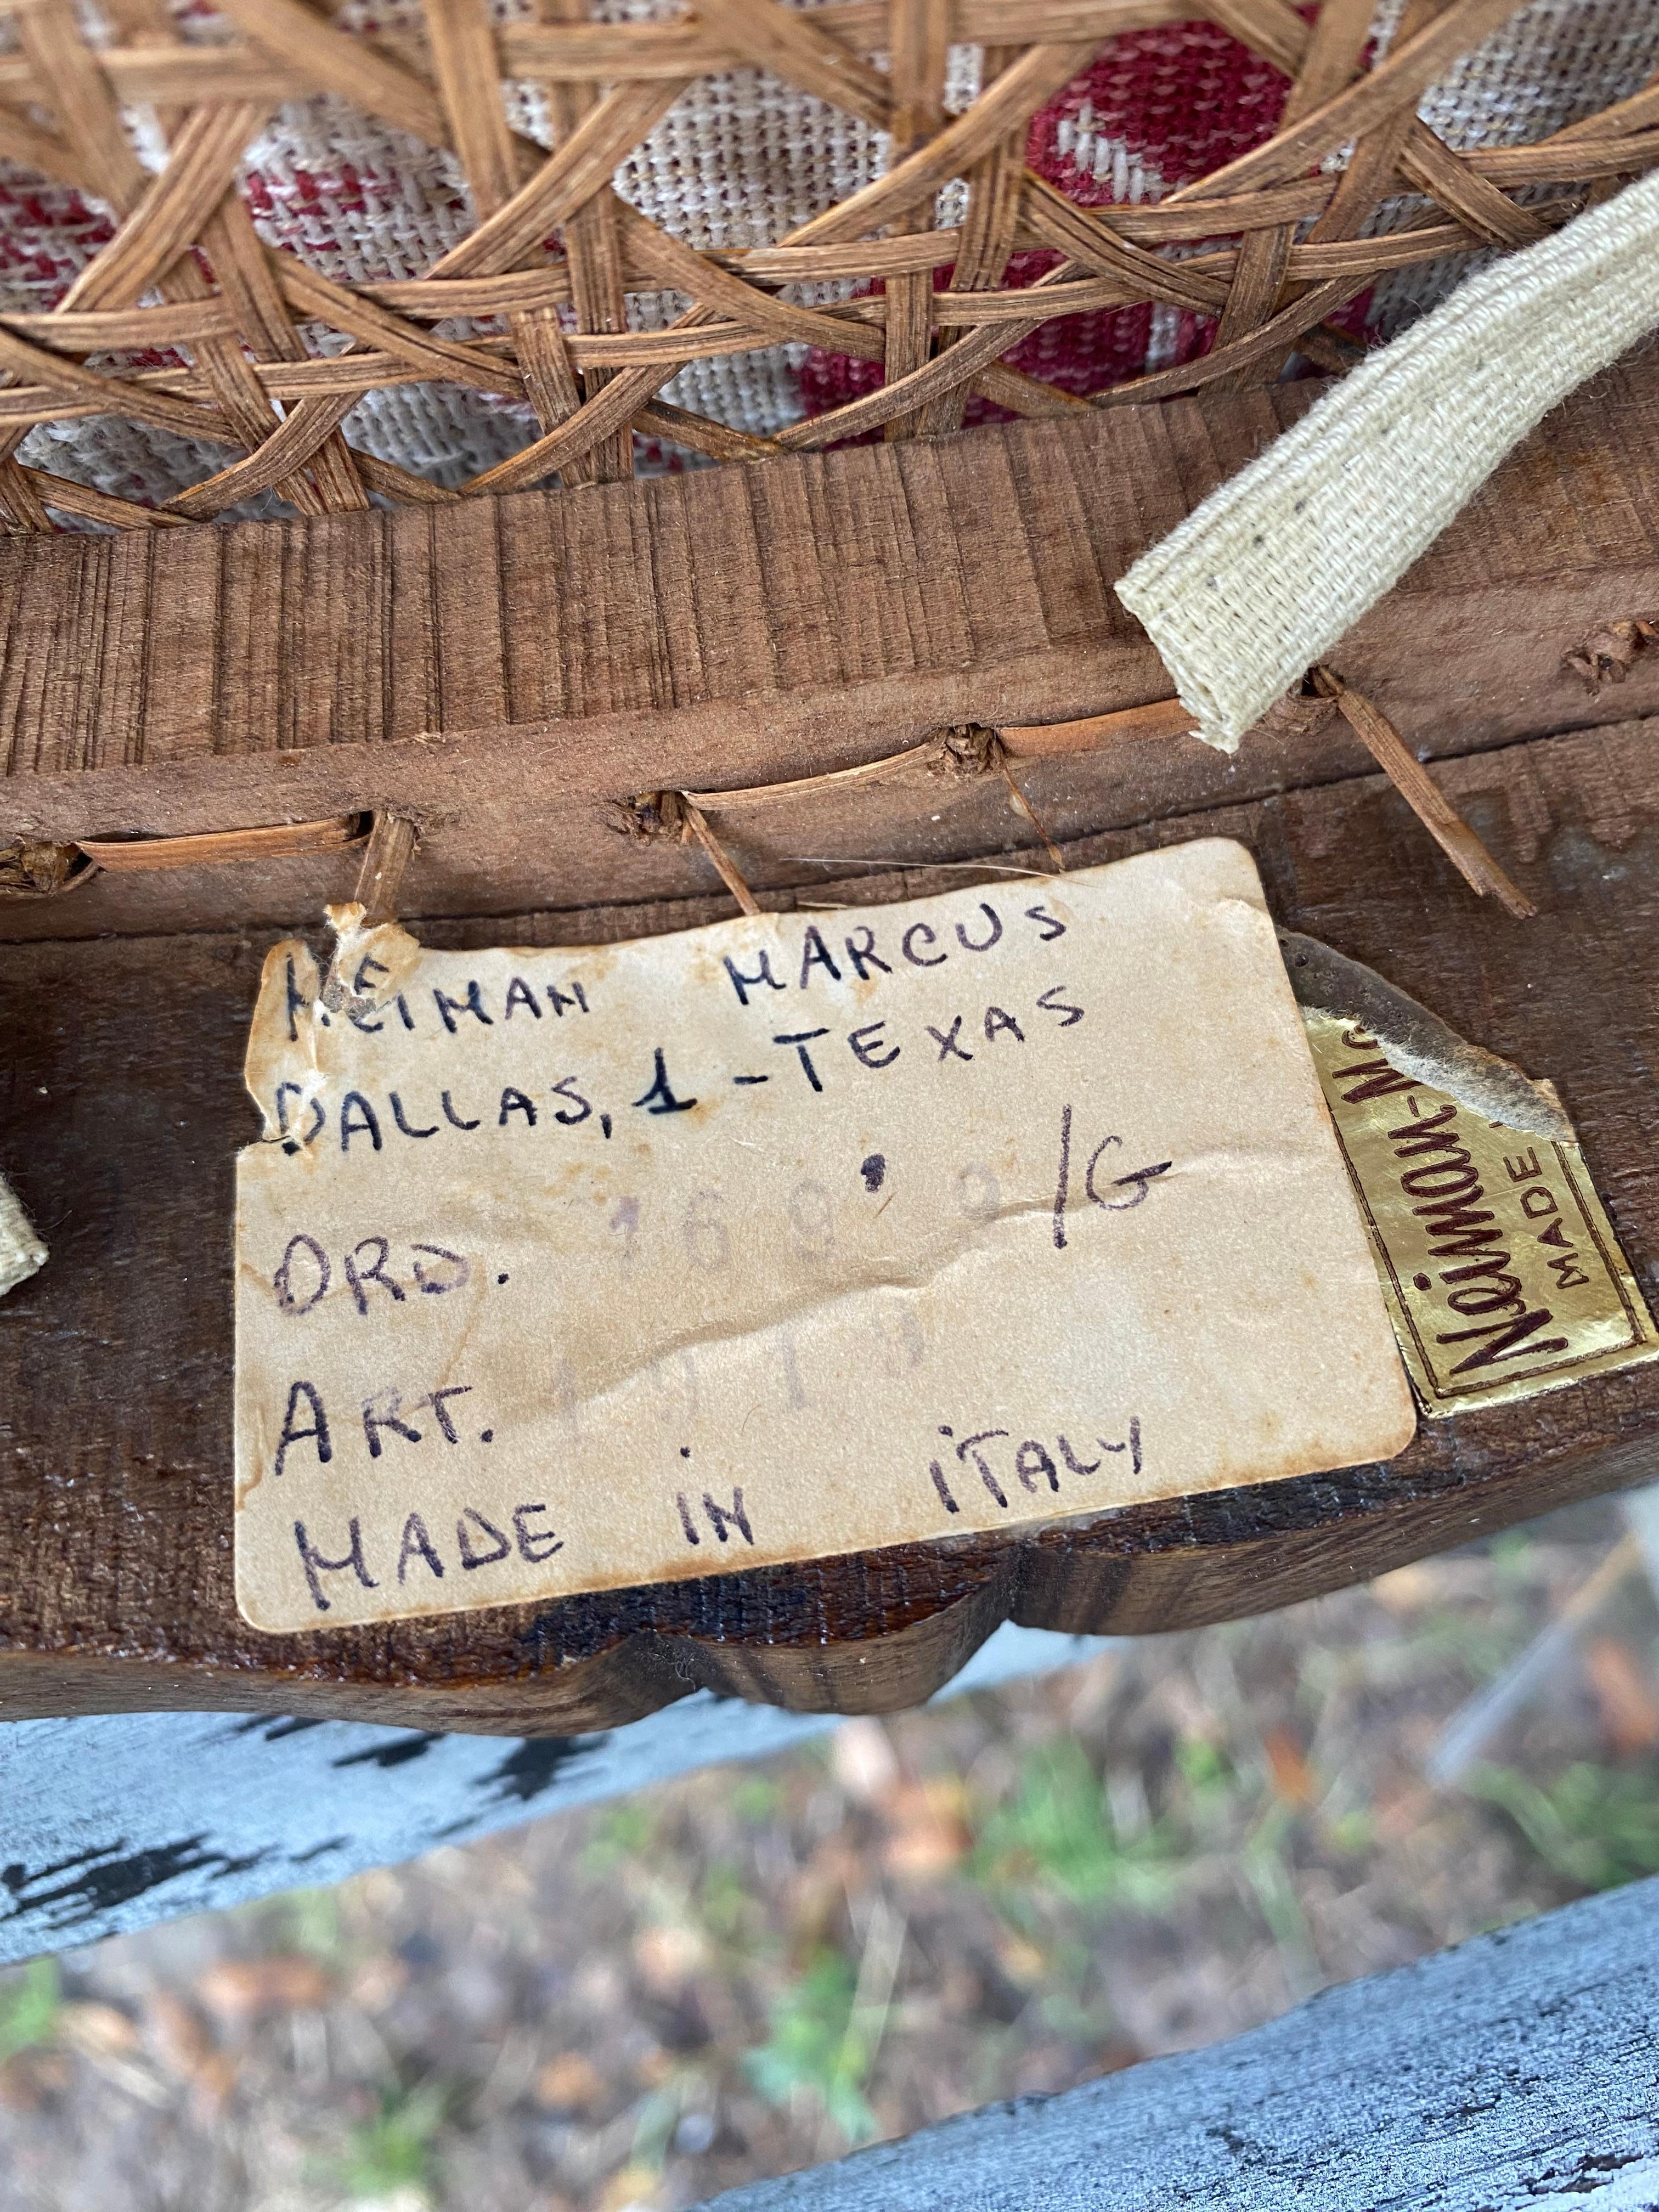 NEIMAN MARCUS
DALLAS, 1 - TEXAS
ORD. /G
ART.
MADE IN ITALY
Neiman-
MADE